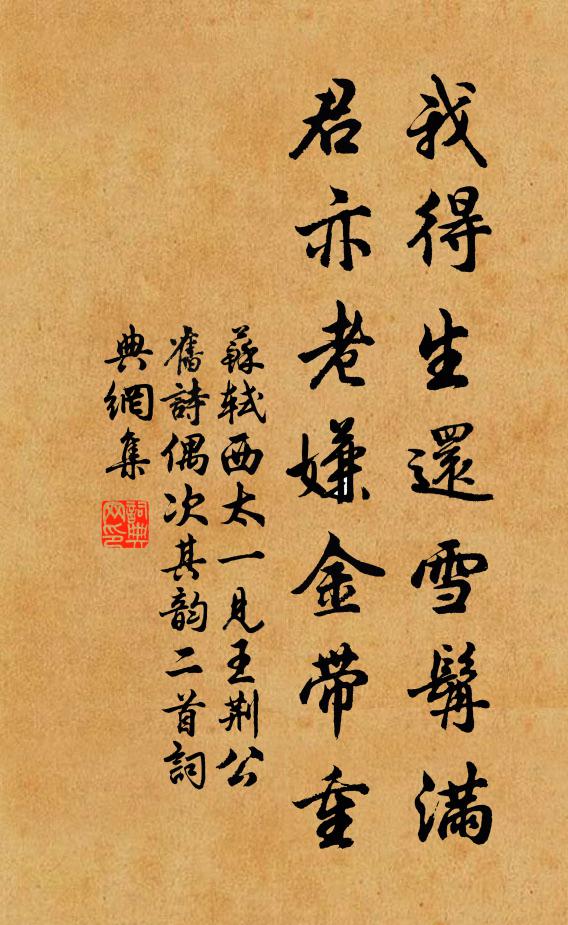 我得生還雪髯滿
君亦老嫌金帶重
蘇軾西太一見王荆公
舊詩偶次其韵二首詞
典網集
詞典网印